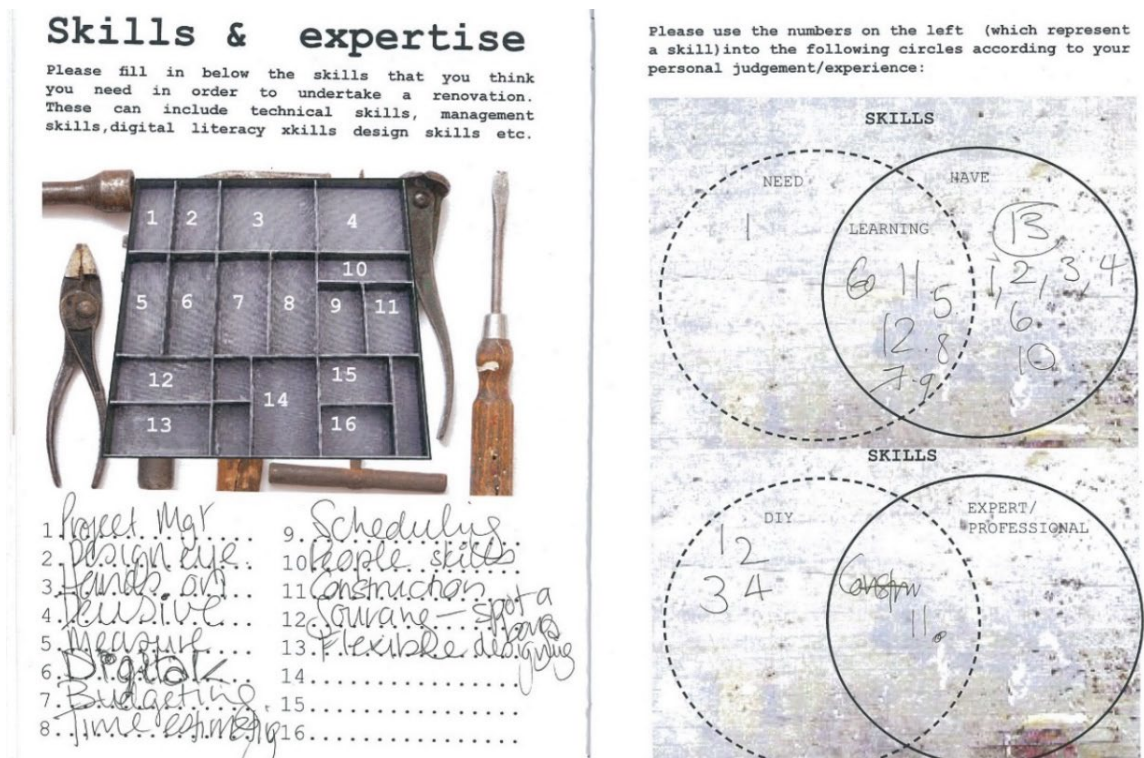 Skills & expertise
Please fill in below the skills that you think
you need in order to undertake a renovation.
These can include technical skills, management
skills,digital literacy xkills design skills etc.
1 2 3 4
10
5 6 7 8 9 11
12 15
14
13 16
1. Project Mgr
2. Design eye
3. Hands on
4. Decisive
5. Measure
6. Digital
7. Budgeting
8. Time
9. Scheduling
10 People skills
11 Construction
12 - spot a
13. Flexible designing
14
15
16
Please use the numbers on the left (which represent
a skill)into the following circles according to your
personal judgement/experience:
SKILLS
NEED
HAVE
LEARNING
1
13
11
1, 2, 3, 4
5.
6
12. 8
10
7. 9
SKILLS
DIY
EXPERT/
PROFESSIONAL
1 2
3 4
11.